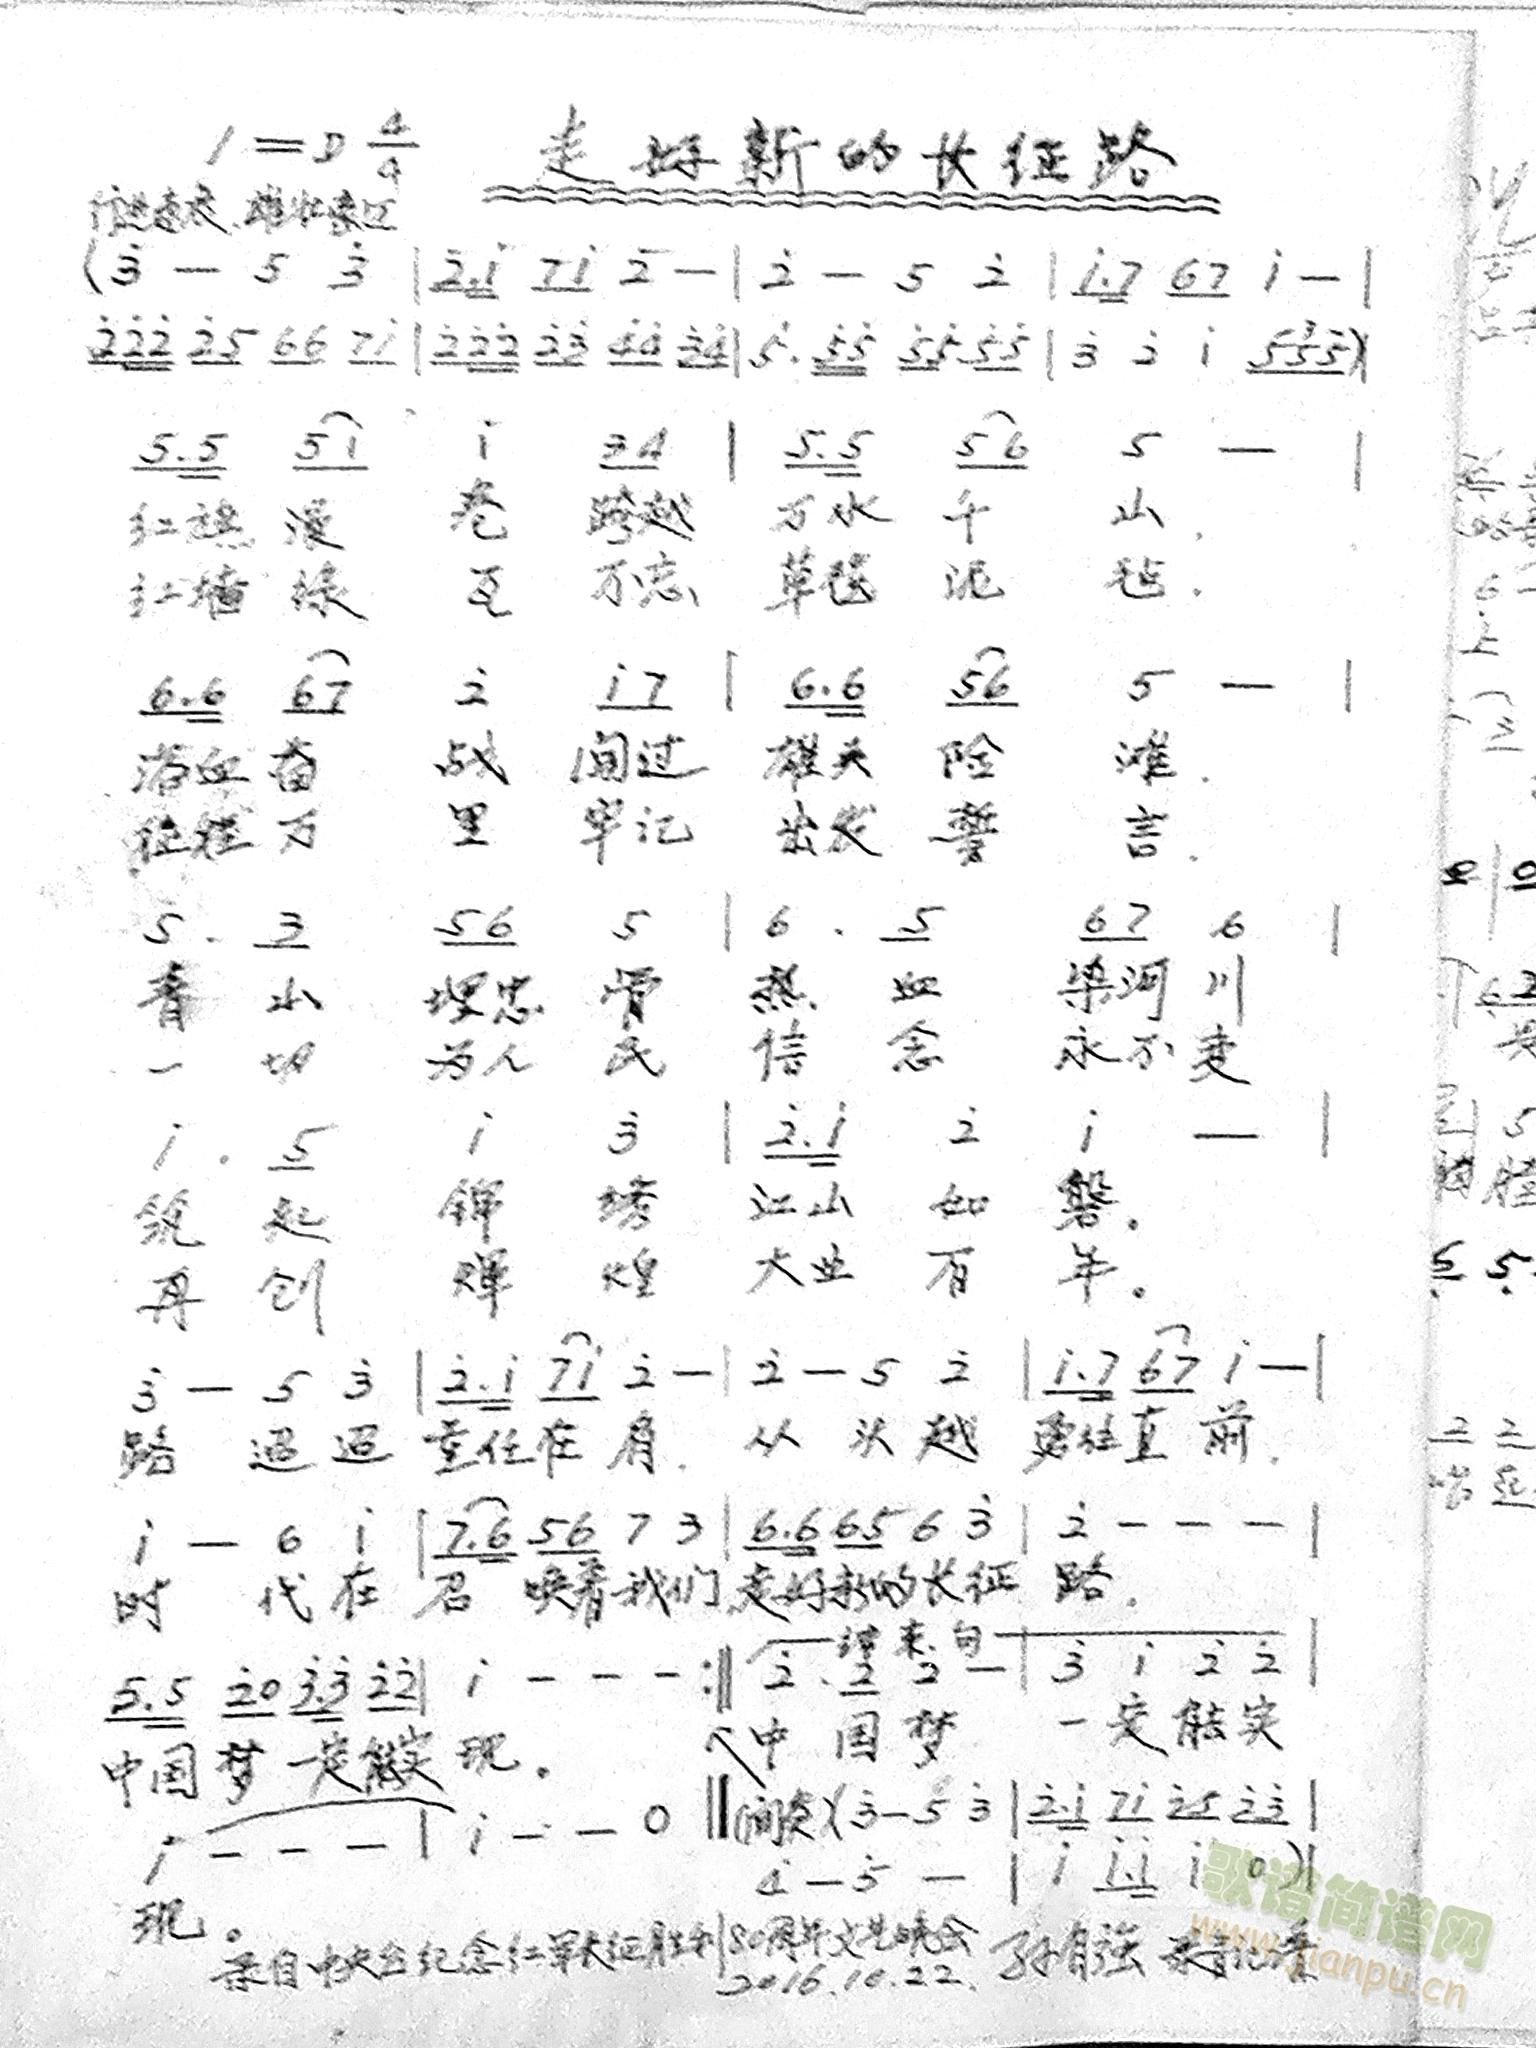 1=D 4/4 走好新的长征路
行进速度、雄壮豪迈
(3̇ — 5 3̇ | 2̇.1̇ 71̇ 2̇ — | 2̇ — 5 2̇ | 1̇.7 67 1̇ — |
2̇2̇2̇ 2̇5 66 71̇ | 2̇2̇2̇ 2̇3̇ 4̇4̇ 3̇4̇ | 5̇. 5̇5̇ 5̇5̇ 5̇5̇ | 3̇ 2̇ 1̇ 555) |
5.5 51̇ 1̇ 34 | 5.5 56 5 — |
红旗漫 卷 跨越 万水千 山,
红墙绿 瓦 不忘 草毯泥 毡.
6.6 67 2̇ 1̇7 | 6.6 56 5 — |
浴血奋 战 闯过 雄关险 滩.
征程万 里 牢记 出发誓 言.
5. 3 56 5 | 6. 5 67 6 |
青 山 埋忠 骨 热 血 染河 川
一 切 为人 民 信 念 永不 变
1̇. 5 1̇ 3̇ | 2̇.1̇ 2̇ 1̇ — |
筑 起 锦 绣 江山 如 磐。
再 创 辉 煌 大业 百 年。
3̇ — 5 3̇ | 2̇.1̇ 71̇ 2̇ — | 2̇ — 5 2̇ | 1̇.7 67 1̇ — |
路 迢迢 重任在 肩. 从 头越 勇往直 前.
1̇ — 6 1̇ | 7.6 56 7 3 | 6.6 65 6 3̇ | 2̇ — — — |
时 代在 召 唤着我们 走好新的长征 路.
结束句
5.5 2̇0 3̇.3̇ 2̇2̇ | 1̇ — — — :‖ 2̇. 2̇ 2̇ — | 3̇ 1̇ 2̇ 2̇ |
中国梦 一定能实 现。 中 国梦 一定能实
1̇ — — — | 1̇ — — 0 ‖ (间奏)(3̇ — 5 3̇ | 2̇.1̇ 71̇ 2̇5 2̇3̇ |
4̇ — 5̇ — | 1̇ 1̇.1̇ 1̇ 0) |
现。
录自中央台纪念红军长征胜利80周年文艺晚会 孙有强 录音记谱
2016.10.22.
歌谱简谱网
www.jianpu.cn